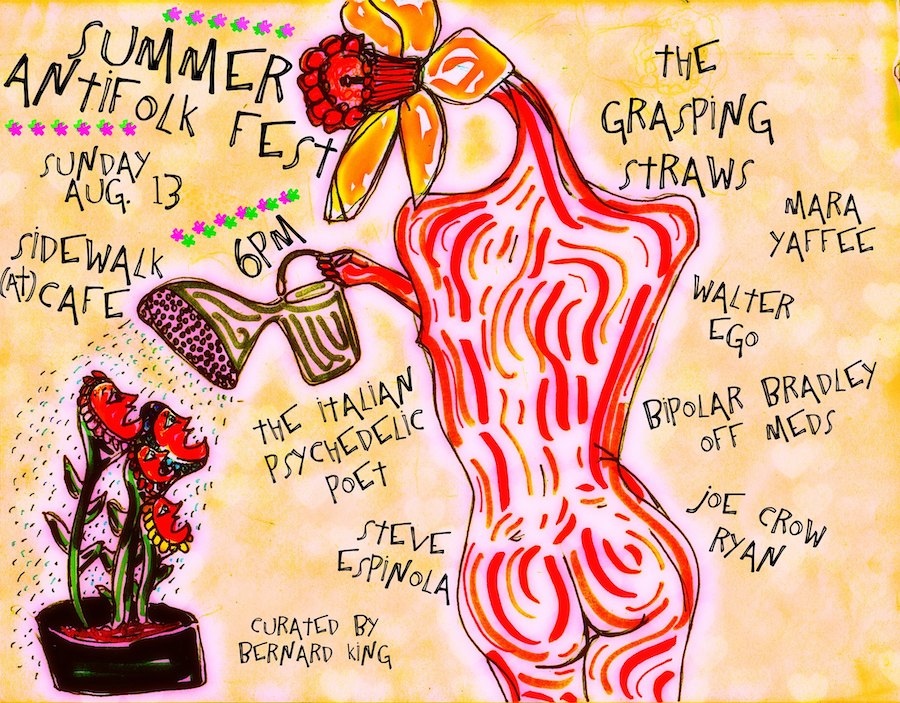 SUMMER
ANTIFOLK
FEST
SUNDAY
AUG. 13
6PM
SIDEWALK
(AT) CAFE
THE
GRASPING
STRAWS
MARA
YAFFEE
WALTER
EGO
BIPOLAR BRADLEY
OFF MEDS
THE ITALIAN
PSYCHEDELIC
POET
JOE CROW
RYAN
STEVE
ESPINOLA
CURATED BY
BERNARD KING